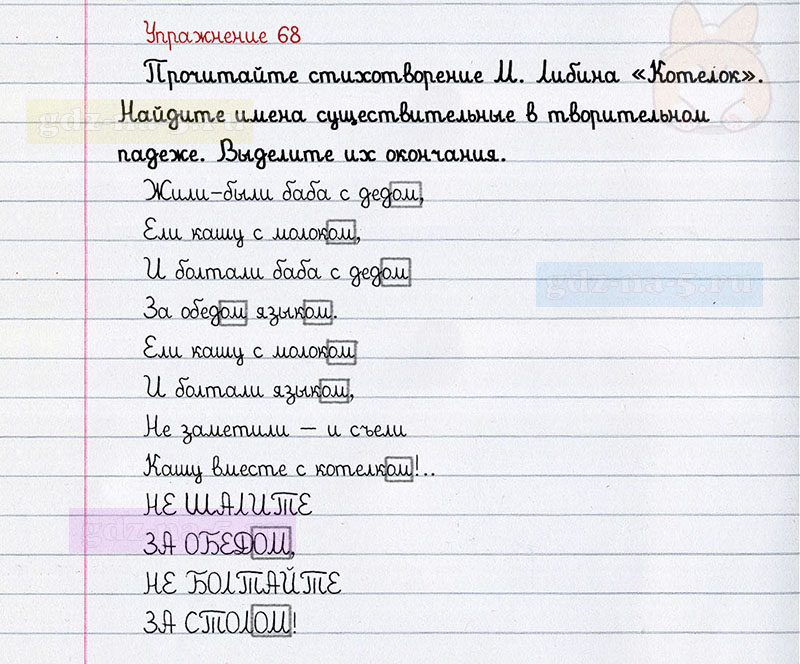 Упражнение 68
Прочитайте стихотворение М. Либина «Котелок».
Найдите имена существительные в творительном
падеже. Выделите их окончания.
Жили-были баба с дедом,
Ели кашу с молоком,
И болтали баба с дедом
За обедом языком.
Ели кашу с молоком
И болтали языком,
Не заметили – и съели
Кашу вместе с котелком!..
НЕ ШАЛИТЕ
ЗА ОБЕДОМ,
НЕ БОЛТАЙТЕ
ЗА СТОЛОМ!
gdz-na-5.ru
gdz-na-5.ru
gdz-na-5